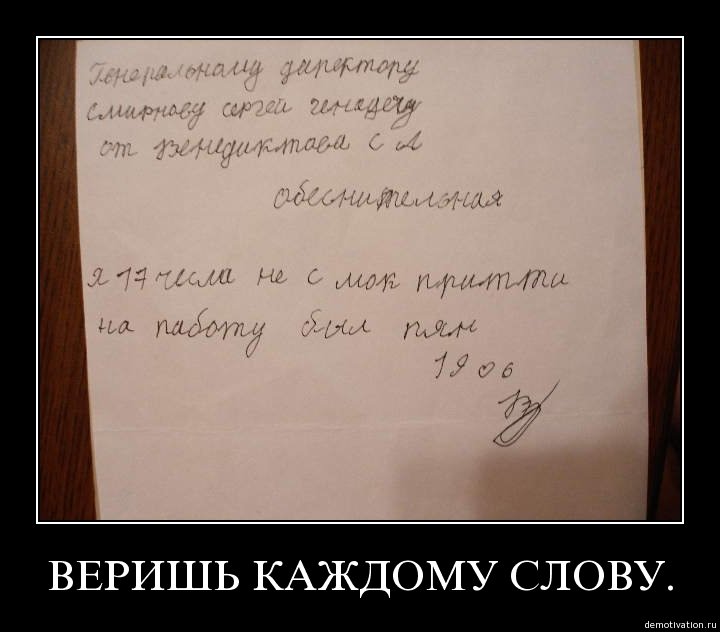 Генеральному директору
Смирнову сергей генадечу
от Венедиктова с А
обеснительная
я 17 числа не с мок притти
на работу был пян
19 06
ВЕРИШЬ КАЖДОМУ СЛОВУ.
demotivation.ru